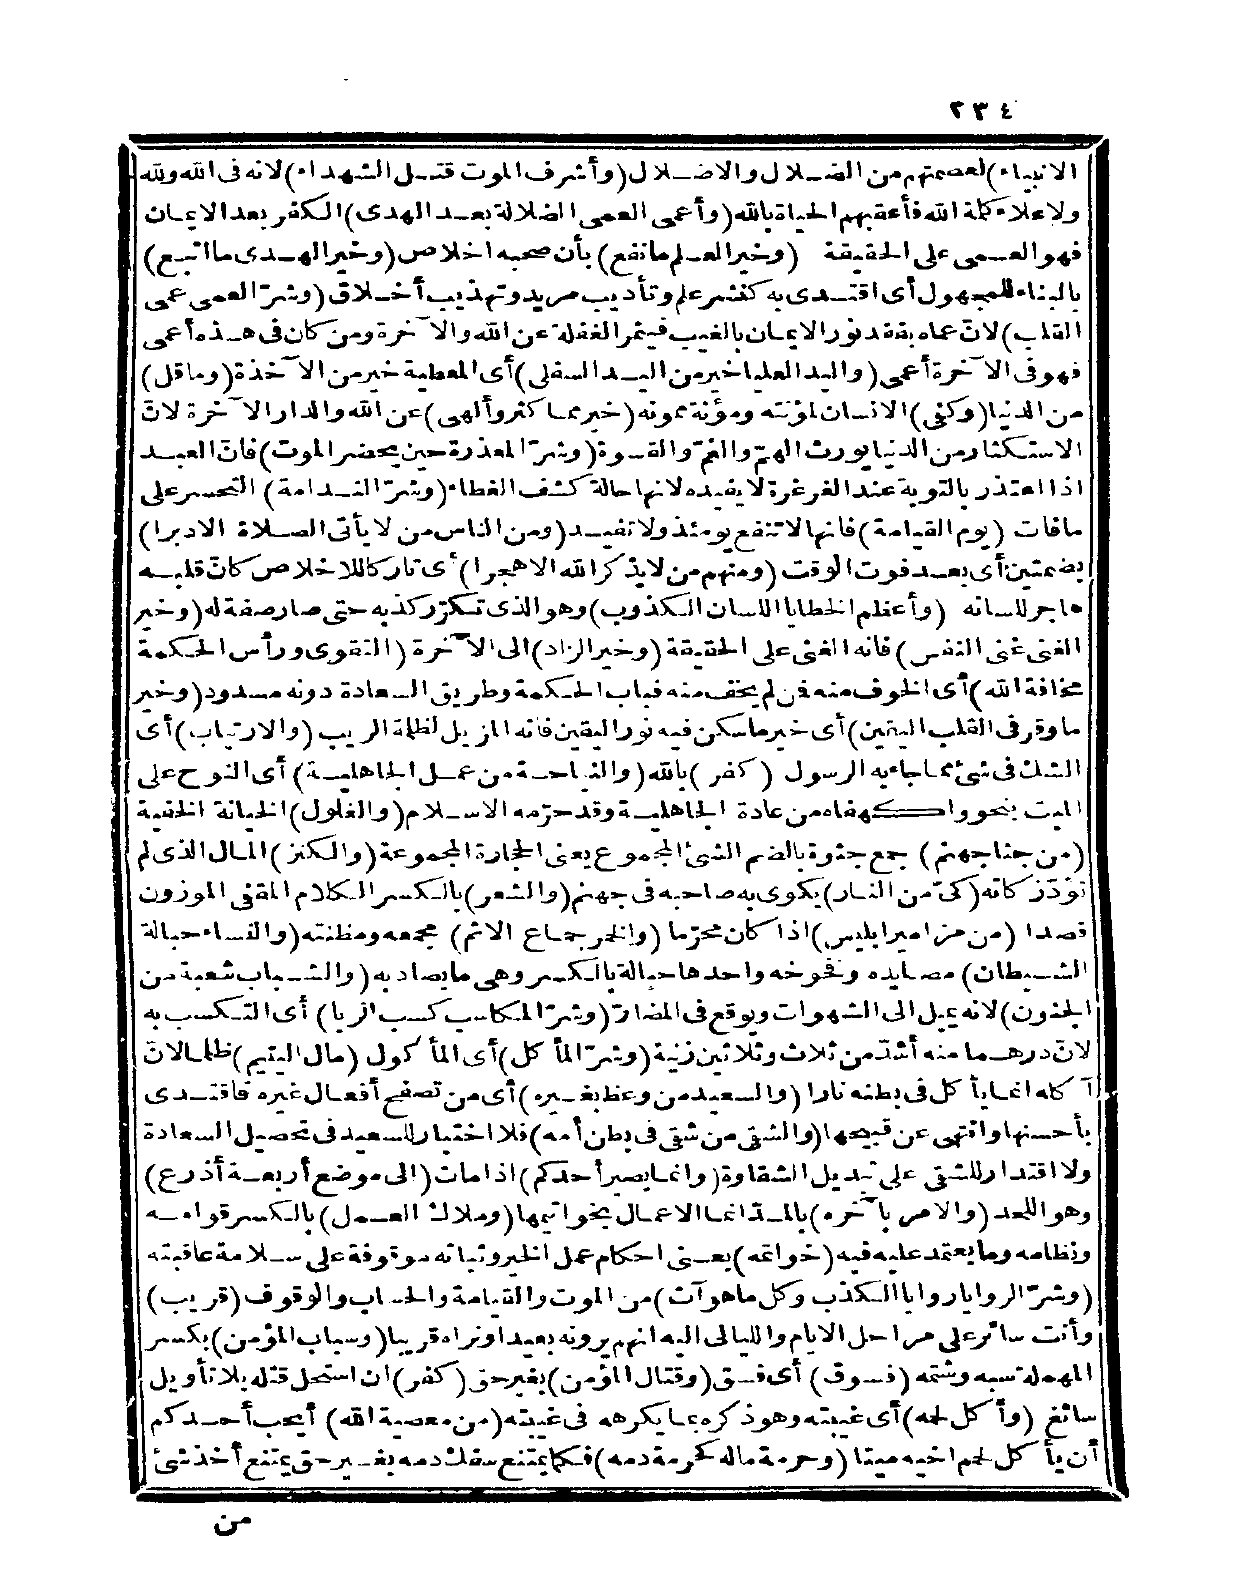 ٢٣٤
الانبياء)لعصمتهم من الضلال والاضلال(وأشرف الموت قتل الشهداء)لانه فى الله ولله
ولاعلاء كلمة الله فأعقبهم الحياة بالله(وأعمى العمى الضلالة بعد الهدى)الكفر بعد الايمان
فهو العمى على الحقيقة (وخير العلم ما نفع)بأن صحبه اخلاص(وخير الهدى ما اتبع)
بالبناء للمجهول أى اقتدى به كنشر علم وتأديب مريد وتهذيب أخلاق(وشرّ العمى عمى
القلب)لانّ عماه بفقد نور الايمان بالغيب فيثمر الغفلة عن الله والآخرة ومن كان فى هذه أعمى
فهو فى الآخرة أعمى(واليد العليا خير من اليد السفلى)أى المعطية خير من الآخذة(وما قل)
من الدنيا(وكفى)الانسان لمؤنته ومؤنة ممونه(خير مما كثر وألهى)عن الله والدار الآخرة لانّ
الاستكثار من الدنيا يورث الهمّ والغمّ والقسوة(وشرّ المعذرة حين يحضر الموت)فانّ العبد
اذا اعتذر بالتوبة عند الغرغرة لا يفيده لانها حالة كشف الغطاء(وشرّ الندامة) التحسر على
مافات (يوم القيامة)فانها لا تنفع يومئذ ولا تفيد(ومن الناس من لا يأتى الصلاة الا دبرا)
بضمتين أى بعد فوت الوقت (ومنهم من لا يذكر الله الا هجرا)أى تاركا للاخلاص كانّ قلبه
هاجر للسانه (وأعظم الخطايا اللسان الكذوب)وهو الذى تكرّر كذبه حتى صار صفة له(وخير
الغنى غنى النفس)فانه الغنى على الحقيقة(وخير الزاد)الى الآخرة (التقوى ورأس الحكمة
مخافة الله)أى الخوف منه فمن لم يخف منه فباب الحكمة وطريق السعادة دونه مسدود(وخير
ما وقر فى القلب اليقين)أى خير ما سكن فيه نور اليقين فانه المزيل لظلمة الريب (والارتياب)أى
الشك فى شئ مما جاء به الرسول (كفر)بالله(والنياحة من عمل الجاهلية)أى النوح على
الميت بنحو واكهفاه من عادة الجاهلية وقد حرّمه الاسلام(والغلول)الخيانة الخفية
(من جثا جهنم) جمع جثوة بالضم الشئ المجموع يعنى الحجارة المجموعة(والكنز)المال الذى لم
تؤدّ زكاته(كىّ من النار)يكوى به صاحبه فى جهنم(والشعر)بالكسر الكلام المقفى الموزون
قصدا (من مزامير ابليس)اذا كان محرّما (والخمر جماع الاثم) مجمعه ومظنته(والنساء حبالة
الشيطان)مصايده وفخوخه واحدها حبالة بالكسر وهى ما يصاد به(والشباب شعبة من
الجنون)لانه يميل الى الشهوات ويوقع فى المضارّ(وشرّ المكاسب كسب الربا) أى التكسب به
لانّ درهما منه أشدّ من ثلاث وثلاثين زنية(وشرّ المأكل)أى المأكول (مال اليتيم)ظلما لانّ
آكله انما يأكل فى بطنه نارا (والسعيد من وعظ بغيره)أى من تصفح أفعال غيره فاقتدى
بأحسنها وانتهى عن قبيحها(والشقى من شقى فى بطن أمه)فلا اختيار للسعيد فى تحصيل السعادة
ولا اقتدار للشقى على تبديل الشقاوة(وانما يصير أحدكم)اذا مات(الى موضع أربعة أذرع)
وهو اللحد(والامر بآخره)بالمدّ انما الاعمال بخواتيمها(وملاك العمل)بالكسر قوامه
ونظامه وما يعتمد عليه فيه(خواتمه)يعنى احكام عمل الخير وثباته موقوفة على سلامة عاقبته
(وشرّ الروايا روايا الكذب وكل ما هو آت)من الموت والقيامة والحساب والوقوف(قريب)
وأنت سائر على مراحل الايام والليالى اليه انهم يرونه بعيدا ونراه قريبا(وسباب المؤمن)بكسر
المهملة سبه وشتمه (فسوق) أى فسق(وقتال المؤمن)بغير حق(كفر)ان استحل قتله بلا تأويل
سائغ (وأكل لحمه)أى غيبته وهو ذكره بما يكرهه فى غيبته(من معصية الله) أيحب أحدكم
أن يأكل لحم اخيه ميتا (وحرمة ماله كحرمة دمه)فكما يمتنع سفك دمه بغير حق يمتنع أخذ شئ
من